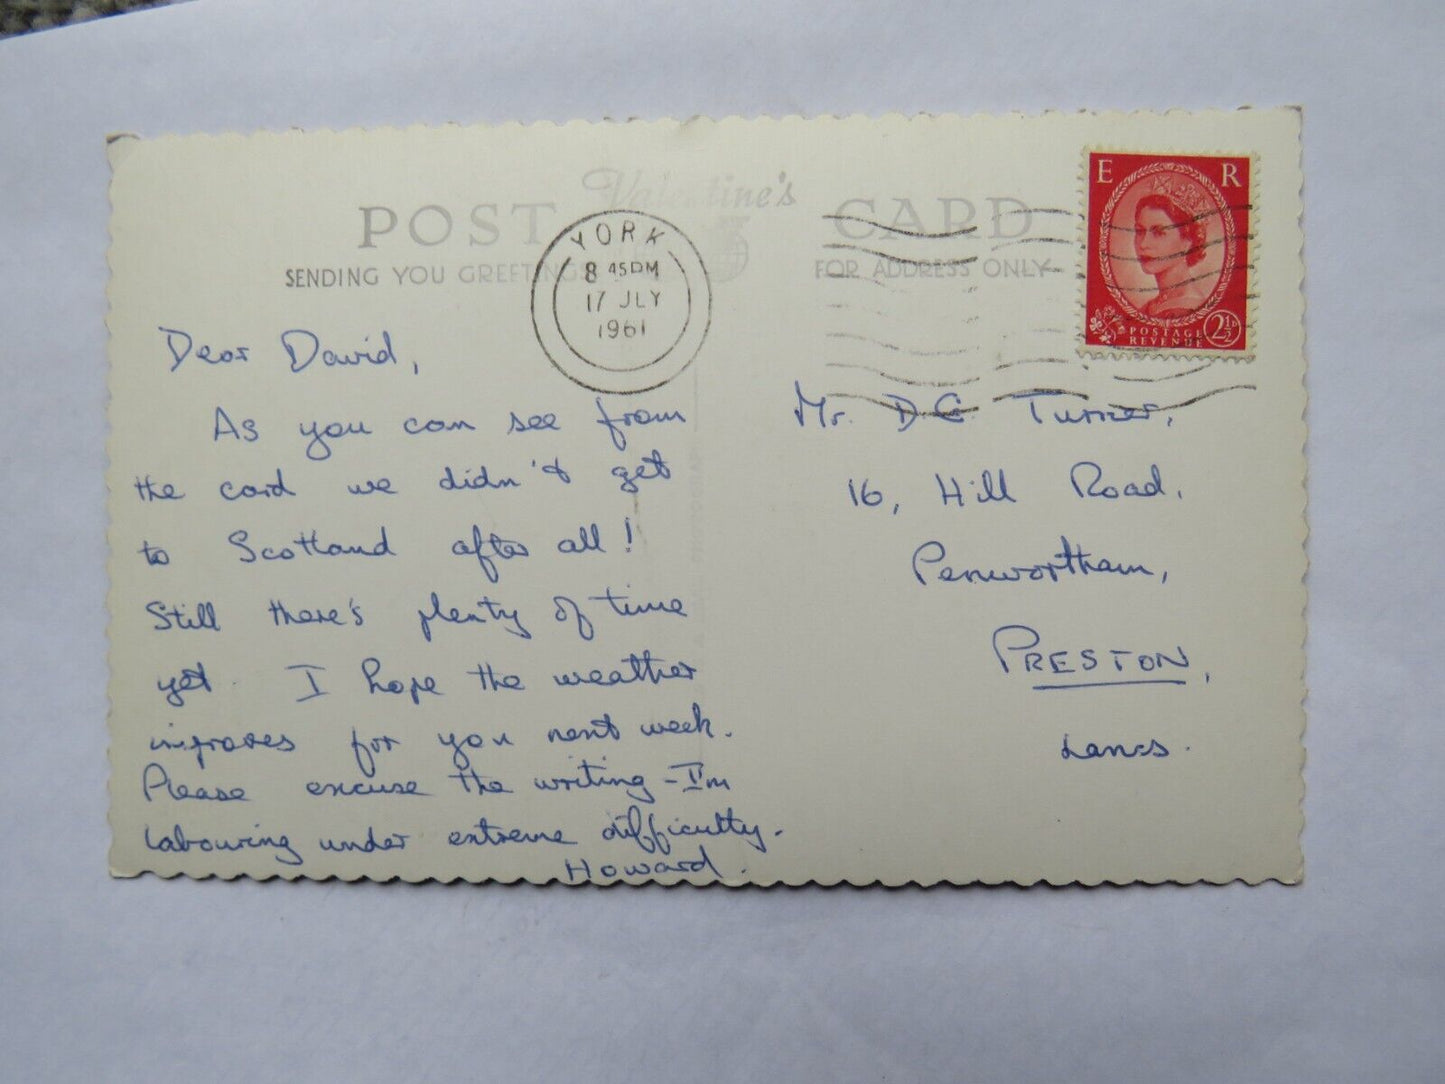 Valentine's
POST CARD
SENDING YOU GREETINGS
FOR ADDRESS ONLY
YORK
8 45PM
17 JLY
1961
E R
POSTAGE
REVENUE
2½D
Dear David,
As you can see from
the card we didn't get
to Scotland after all!
Still there's plenty of time
yet. I hope the weather
improves for you next week.
Please excuse the writing - I'm
labouring under extreme difficulty.
Howard.
Mr. D C Turner,
16, Hill Road,
Penwortham,
PRESTON,
Lancs.